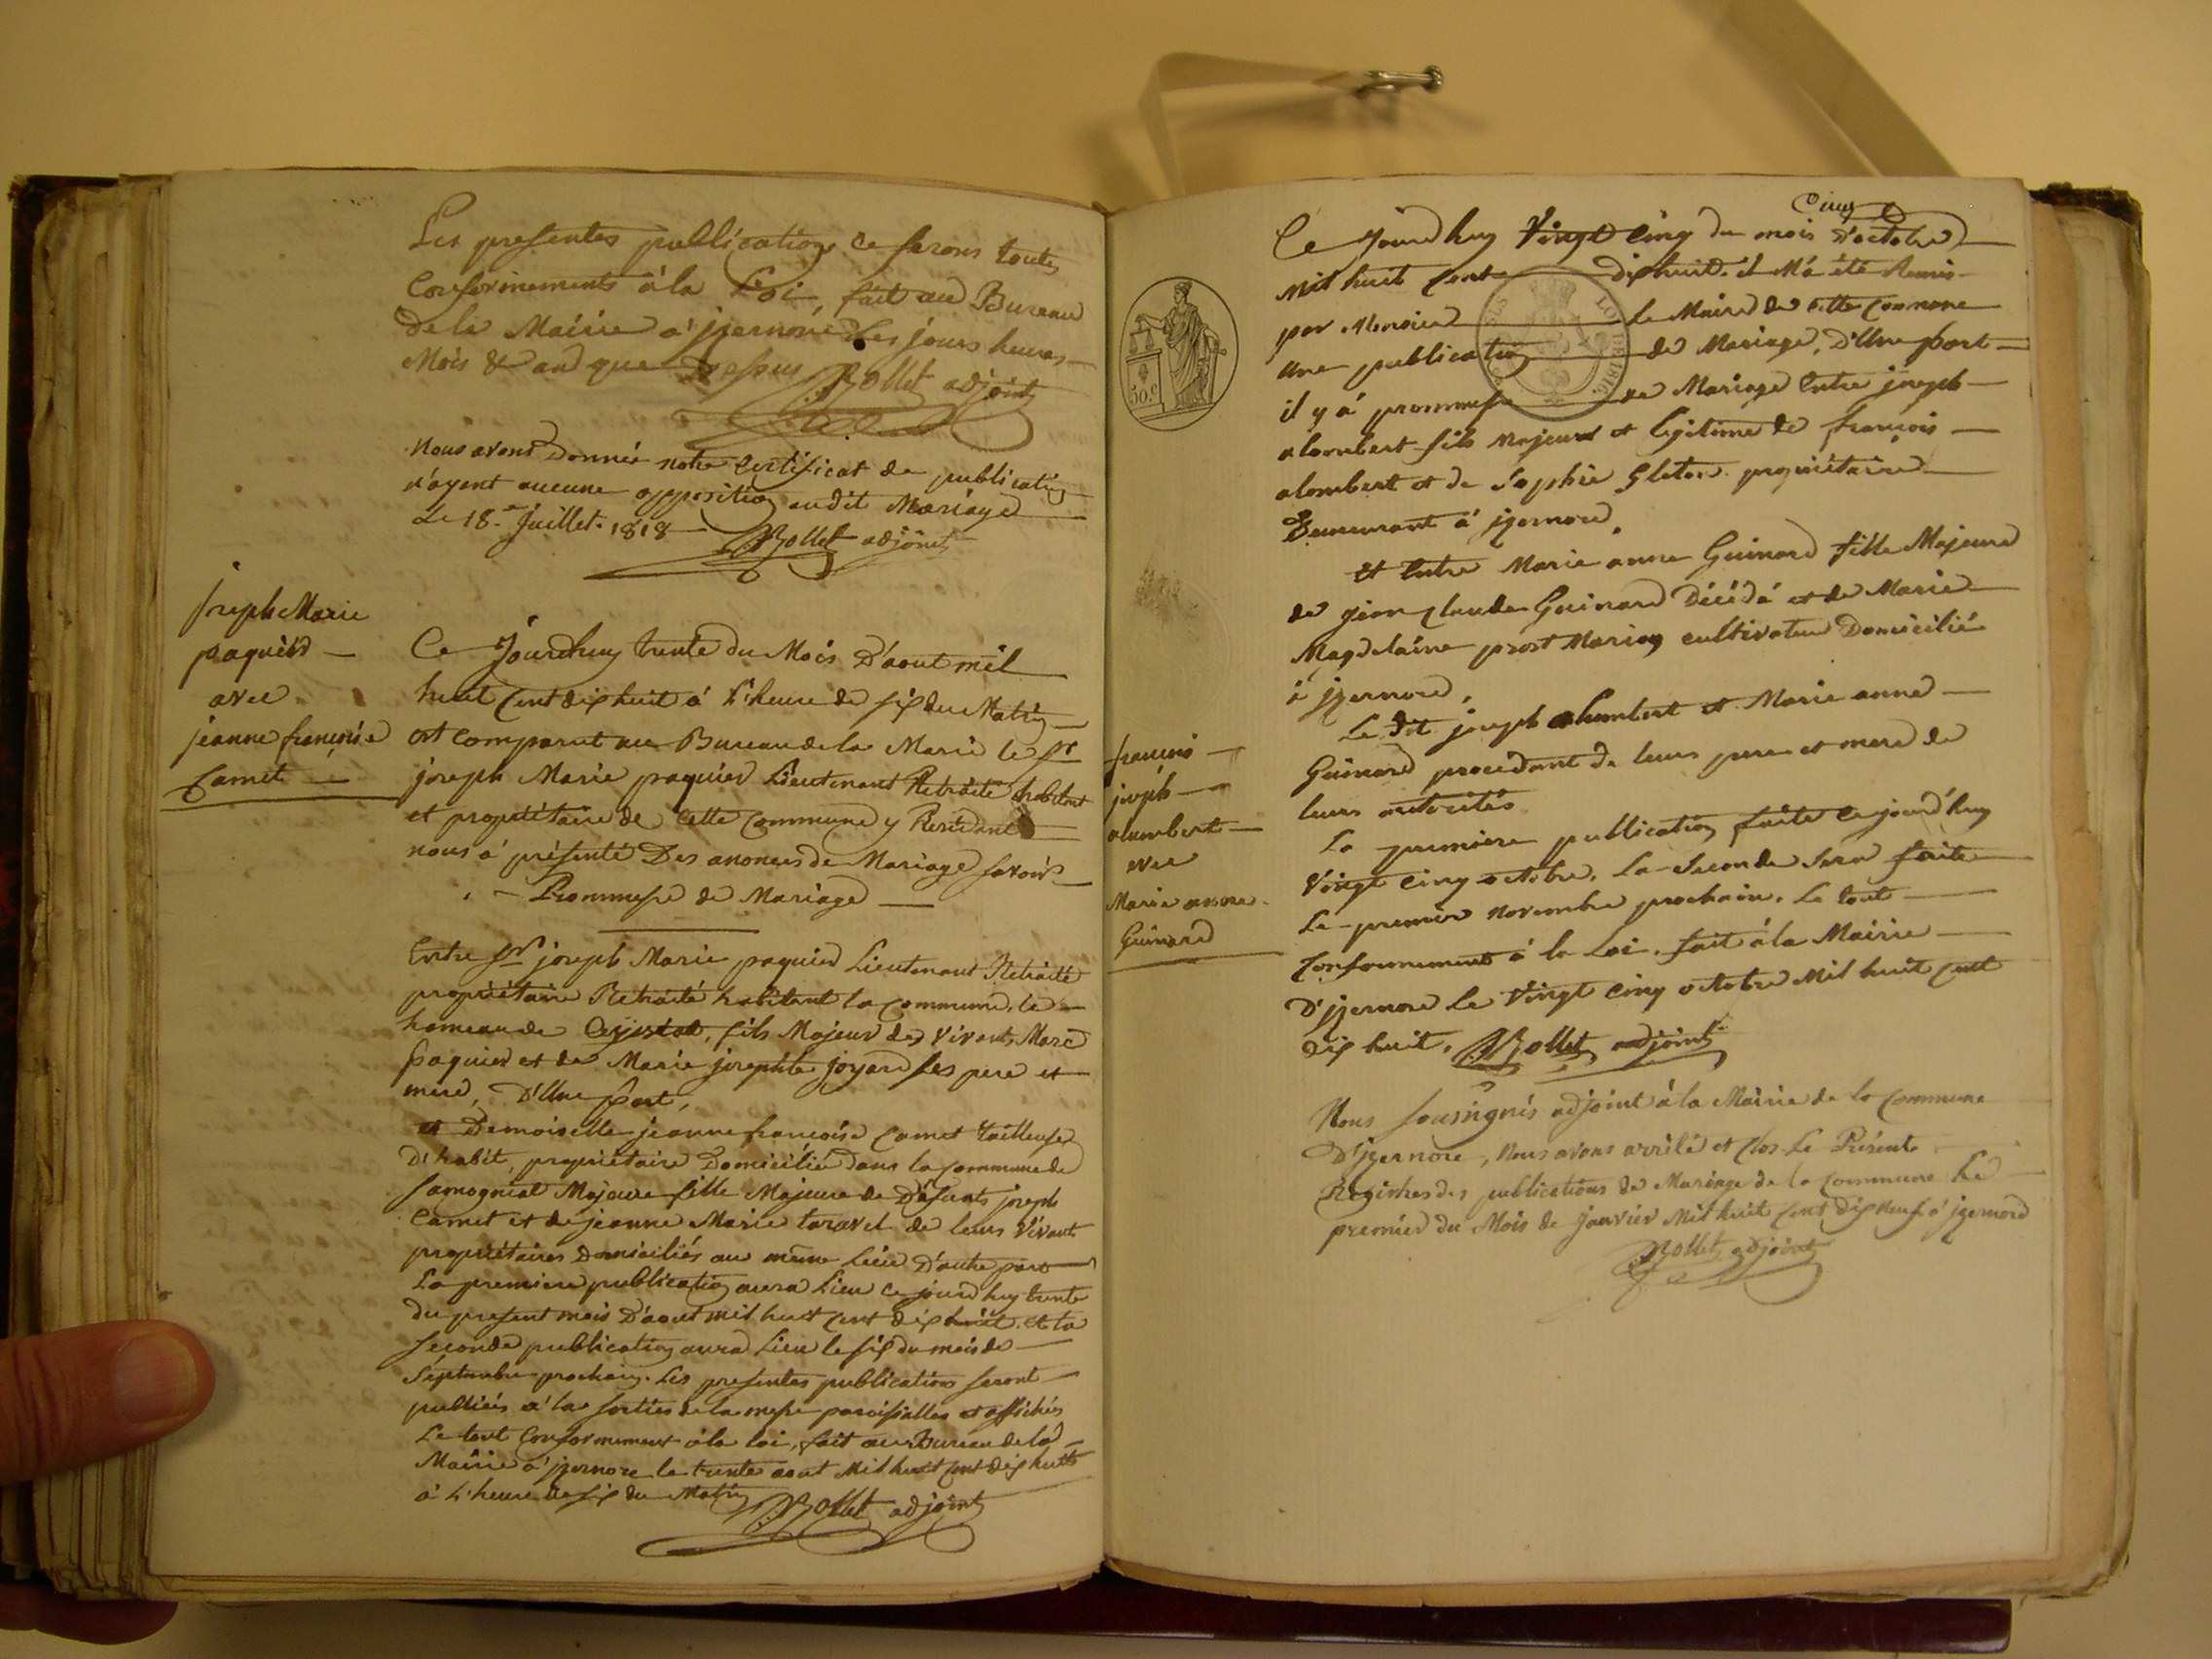 Les presentes publication ce feront toutes
Conforinements à la Loi, fait au Bureau
de la Mairie a' jzernore Les jours heures
Mois & and que Dessus Bollet adjoint
nous avons Donnée notre Certificat de publication
n'ayent aucune opposition audit Mariage
Le 18.e Juillet. 1818 Bollet adjoint
joseph Marie
paquier
avec
jeanne françoise
Camet
Ce Jourdhuy trente du Mois D'aout mil
huit Cent dix huit à L'heure de six du Matin
est Comparut au Bureau de la Marie le sr
joseph Marie paquier Lieutenant Retraité habitant
et propriétaire de Cette Commune y Residant
nous à présenté Des anonces de Mariage savoir
Prommesse de Mariage
Entre sr joseph Marie paquier Lieutenant Retraité
propriétaire Retraité habitant la Commune, le
hameau de fils Majeur des Vivants Marc
paquier et de Marie josephte joyard ses pere et
mere, D'Une part,
et Demoiselle jeanne françoise Camet tailleuse
D'habit, propriétaire Domiciliée Dans la Commune de
Samogniat Majeure fille Majeure de Défunts joseph
Camet et de jeanne Marie taravel de leurs Vivants
propriétaires Domiciliés au même Lieu D'autre part
La premiere publication aura Lieu ce jourd'huy trente
du present mois D'aout mil huit Cent dix huit. et la
seconde publication aura Lieu le six du mois de
Septembre prochain. Les presentes publications seront
publiées a' la sorties de la messe paroissialles et affichés
Le tout Conformement à la loi, fait au Bureau de la
Mairie a' jzernore le trente aout Mil huit Cent dix huit
à L'heure de six du Matin Bollet adjoint
Cinq
Ce Jourdhuy Vingt Cinq du mois d'octobre
Mil huit Cent dixhuit. il M'a été Remis
par Monsieur Le Maire de cette Commone
une publication de Mariage, D'Une part
il y a' prommesse de Mariage Entre joseph
alombert fils Majeur et legitime de françois
alombert et de Sophie Gleton propriétaire
Demeurant à jzernore.
et Entre Marie anne Guinard fille Majeure
de jean Claude Guinard Décédé et de Marie
Magdelaine prost Marion cultivateur Domicilié
à jzernore.
Le Dit joseph alumbert et Marie anne
Guinard procedant de leurs pere et mere de
leurs autorités
La premiere publication faite ce jourd'huy
Vingt Cinq octobre. La Seconde Sera faite
Le premier Novembre prochain. Le tout
Conformement à la Loi. fait à la Mairie
D'jzernore le Vingt Cinq octobre Mil huit Cent
dix huit. Bollet adjoint
50.c
françois
joseph
alumbert
avec
Marie anne
Guinard
Nous Sousignés adjoint à la Mairie de la Commune
D'jzernore, Nous avons arrêlé et Clos Le Présente
Registres des publications de Mariage de la Commune Le
premier du Mois de janvier Mil huit Cent dix Neuf à jzernore
Bollet adjoint